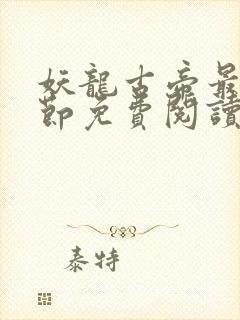 妖龍古帝最
節免費閱讀
泰特